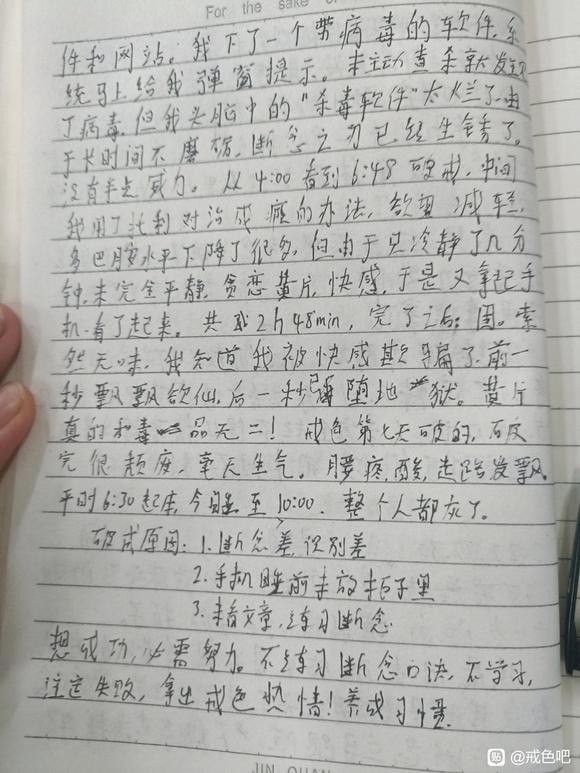 For the sake of
件和网站。我下了一个带病毒的软件,系
统马上给我弹窗提示。未主动查杀就发现
了病毒,但我头脑中的"杀毒软件"太烂了,由
于长时间不磨砺,断念之刃已经生锈了。
没有半点威力。从4:00看到6:48破戒,中间
我用了沃利对治成瘾的办法,欲望减轻,
多巴胺水平下降了很多,但由于只冷静了几分
钟,未完全平静,贪恋黄片,快感,于是又拿起手
机看了起来。共耗2h48min,完了之后:困。索
然无味,我知道我被快感欺骗了,前一
秒飘飘欲仙,后一秒已堕地狱。黄片
真的和毒品无二!戒色第七天破的,破
完很颓废,毫无生气。腰疼,酸,走路发飘。
平时6:30起床,今日睡至10:00.整个人都灰了。
破戒原因:1.断念差,识别差
2.手机睡前未放柜子里
3.未看文章,练习断念
想成功,必需努力。不练习断念口诀,不学习,
注定失败,拿出戒色热情!养成习惯.
JIN QUAN
贴 @戒色吧